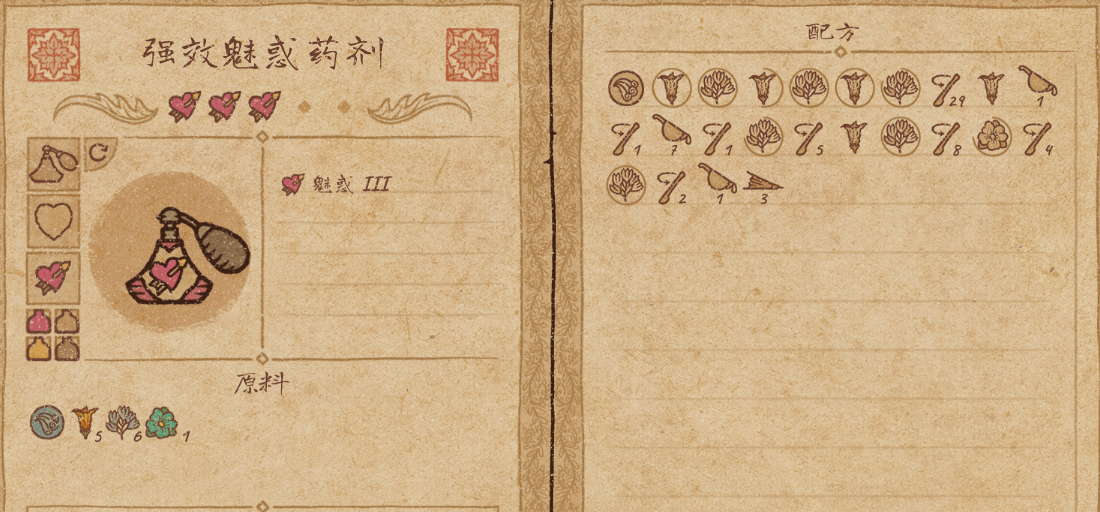 强效魅惑药剂
魅惑 III
原料
5 6 1
配方
29 1
1 7 1 5 8 4
2 1 3